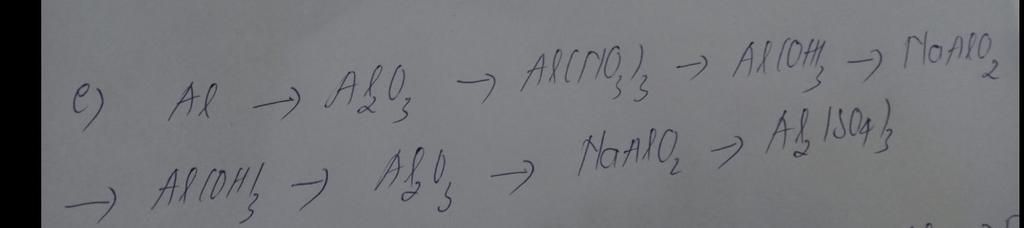 e) Al → Al₂O₃ → Al(NO₃)₃ → Al(OH)₃ → NaAlO₂
→ Al(OH)₃ → Al₂O₃ → NaAlO₂ → Al₂(SO₄)₃